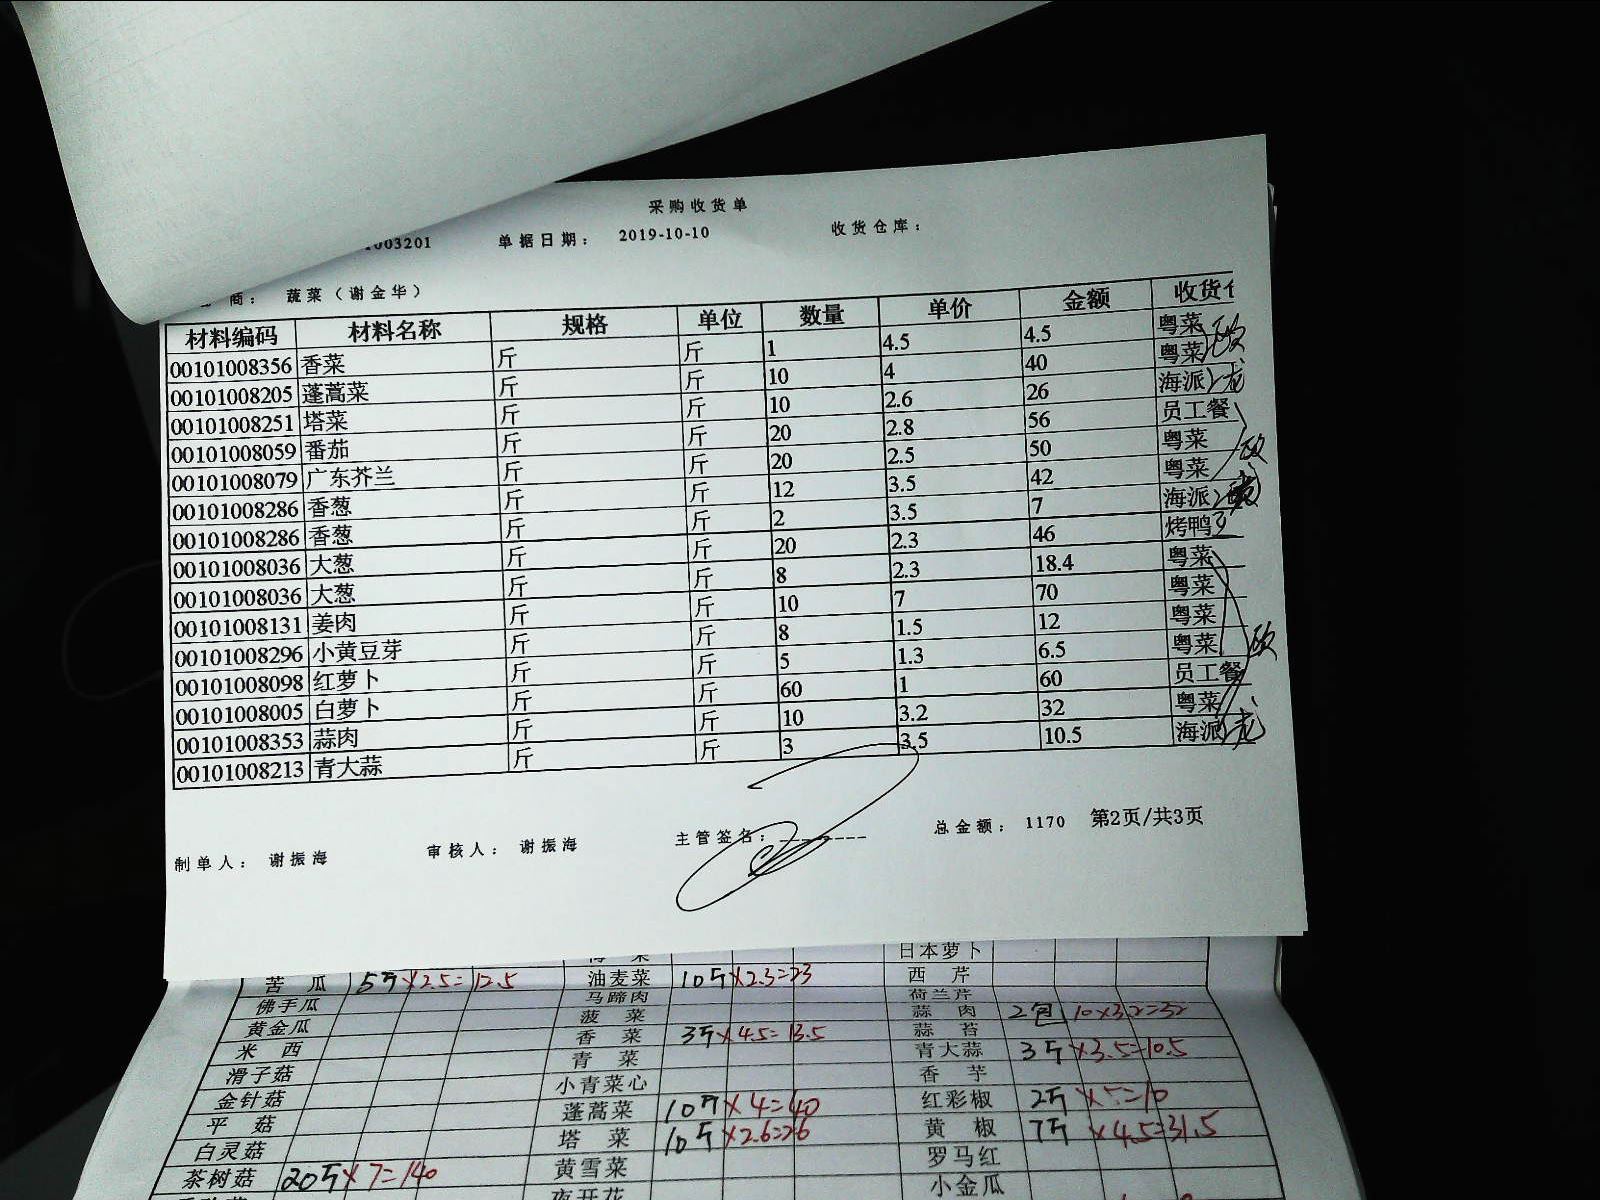 采购收货单
1003201 单据日期： 2019-10-10 收货仓库：
商： 蔬菜（谢金华）
材料编码 材料名称 规格 单位 数量 单价 金额 收货
00101008356 香菜 斤 斤 1 4.5 4.5 粤菜
00101008205 蓬蒿菜 斤 斤 10 4 40 粤菜
00101008251 塔菜 斤 斤 10 2.6 26 海派
00101008059 番茄 斤 斤 20 2.8 56 员工餐
00101008079 广东芥兰 斤 斤 20 2.5 50 粤菜
00101008286 香葱 斤 斤 12 3.5 42 粤菜
00101008286 香葱 斤 斤 2 3.5 7 海派
00101008036 大葱 斤 斤 20 2.3 46 烤鸭
00101008036 大葱 斤 斤 8 2.3 18.4 粤菜
00101008131 姜肉 斤 斤 10 7 70 粤菜
00101008296 小黄豆芽 斤 斤 8 1.5 12 粤菜
00101008098 红萝卜 斤 斤 5 1.3 6.5 粤菜
00101008005 白萝卜 斤 斤 60 1 60 员工餐
00101008353 蒜肉 斤 斤 10 3.2 32 粤菜
00101008213 青大蒜 斤 斤 3 3.5 10.5 海派
制单人： 谢振海 审核人： 谢振海 主管签名： 总金额： 1170 第2页/共3页
日本萝卜
苦瓜 5斤×2.5=12.5 油麦菜 10斤×2.3=23 西芹
佛手瓜 马蹄肉 荷兰芹
黄金瓜 菠菜 蒜肉 2包 10×3.2=32
米西 香菜 3斤×4.5=13.5 蒜苔
滑子菇 青菜 青大蒜 3斤×3.5=10.5
金针菇 小青菜心 香芋
平菇 蓬蒿菜 10斤×4=40 红彩椒 2斤×5=10
白灵菇 塔菜 10斤×2.6=26 黄椒 7斤×4.5=31.5
茶树菇 20斤×7=140 黄雪菜 罗马红
夜开花 小金瓜